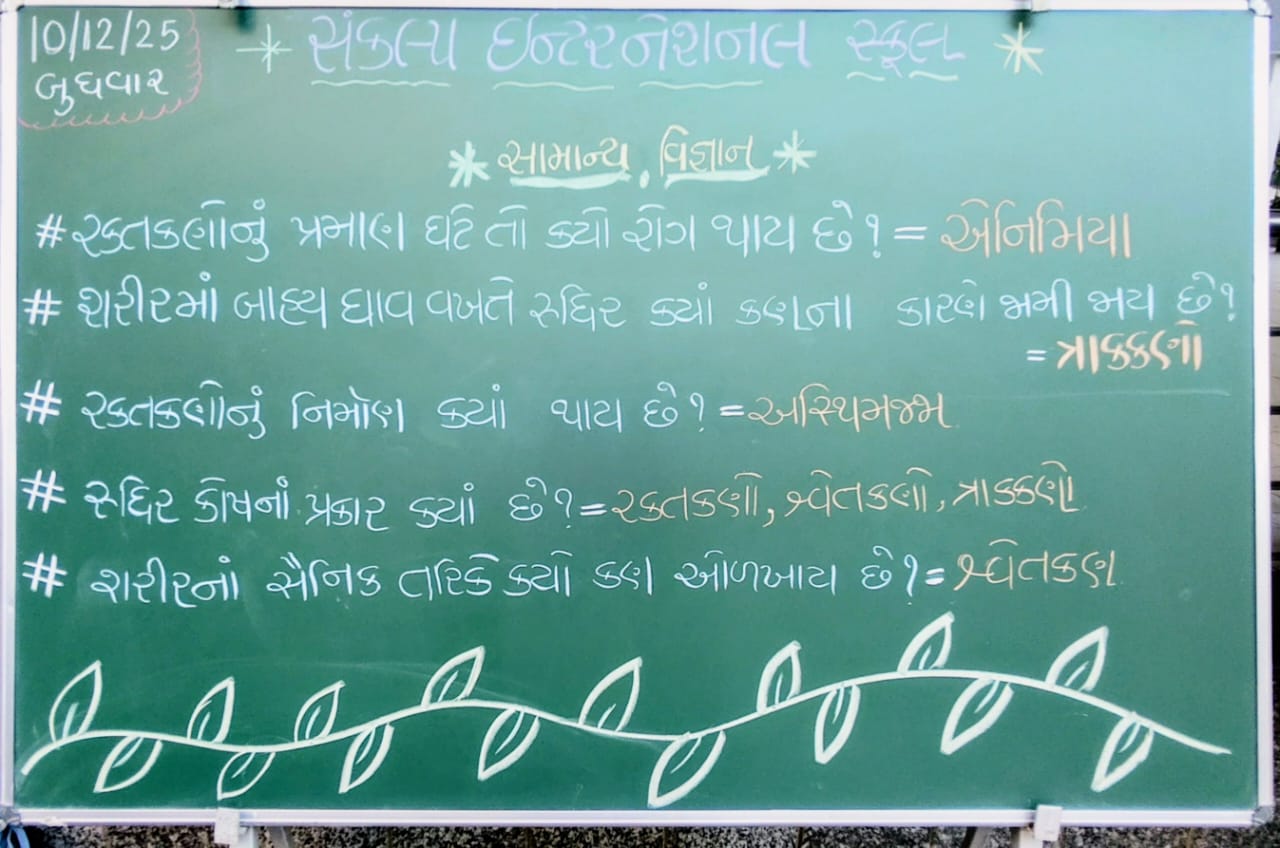 10/12/25
બુધવાર
* સંકલ્પ ઇન્ટરનેશનલ સ્કૂલ *
* સામાન્ય . વિજ્ઞાન *
# રક્તકણોનું પ્રમાણ ઘટે તો ક્યો રોગ થાય છે? = એનિમિયા
# શરીરમાં બાહ્ય ઘાવ વખતે રુધિર ક્યાં કણના કારણે જામી જાય છે?
= ત્રાકકણો
# રક્તકણોનું નિર્માણ ક્યાં થાય છે? = અસ્થિમજ્જા
# રુધિર કોષનાં પ્રકાર ક્યાં છે? = રક્તકણો, શ્વેતકણો, ત્રાકકણો
# શરીરનાં સૈનિક તરિકે ક્યો કણ ઓળખાય છે? = શ્વેતકણ